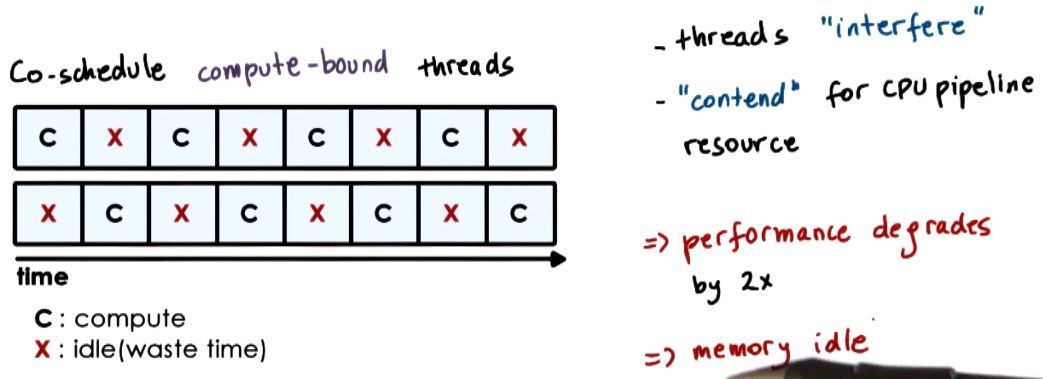 Co-schedule compute-bound threads
C X C X C X C X
X C X C X C X C
time
C : compute
X : idle(waste time)
- threads "interfere"
- "contend" for CPU pipeline
resource
=> performance degrades
by 2x
=> memory idle